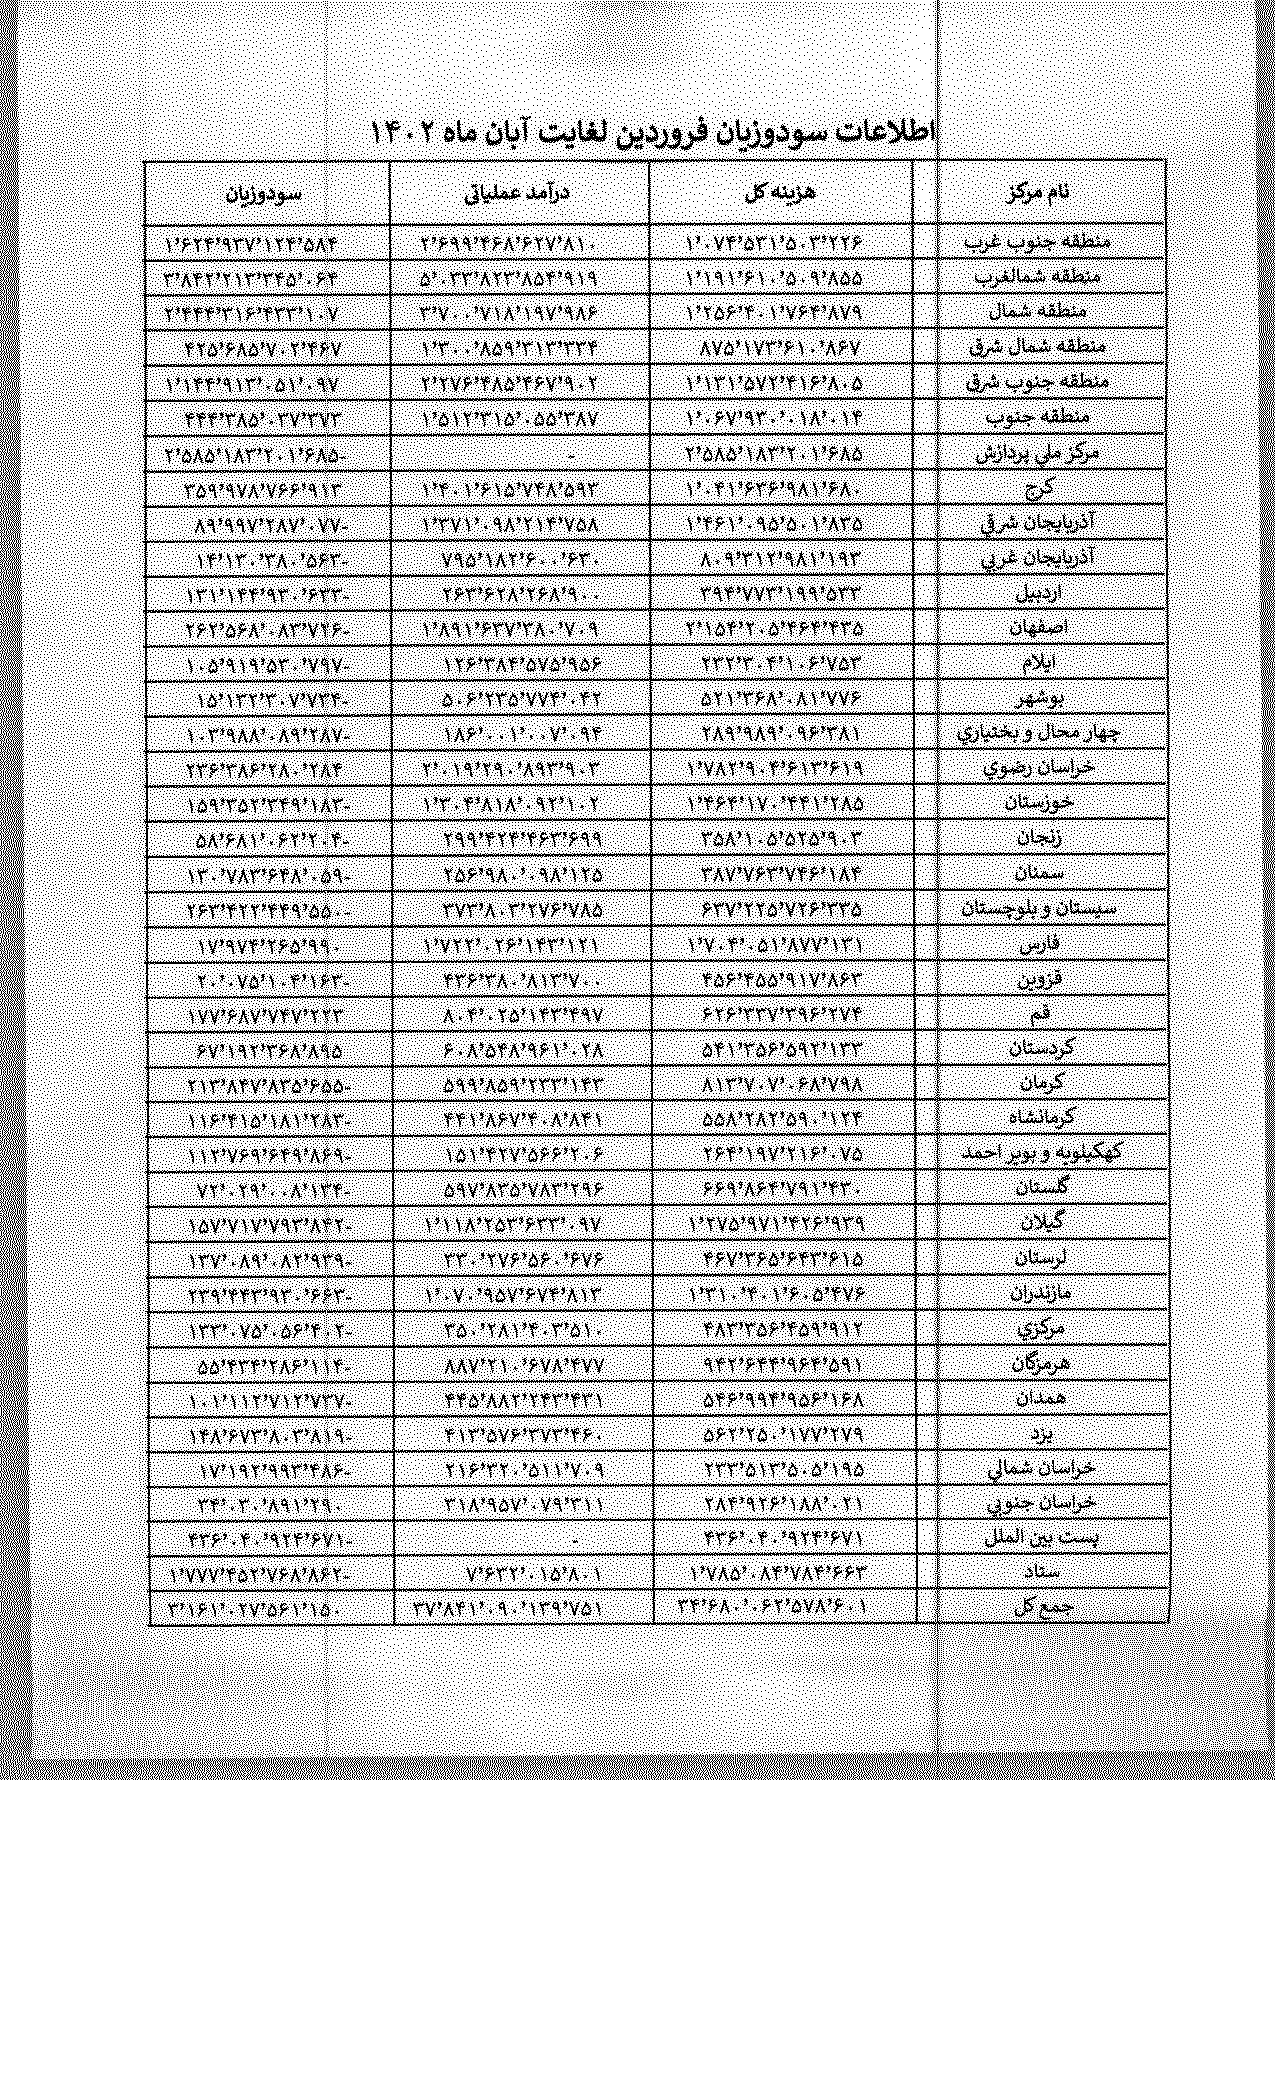 اطلاعات سودوزیان فروردین لغایت آبان ماه ۱۴۰۲
نام مرکز هزینه کل درآمد عملیاتی سودوزیان
منطقه جنوب غرب ۱٬۰۷۴٬۵۳۱٬۵۰۳٬۲۲۶ ۲٬۶۹۹٬۴۶۸٬۶۲۷٬۸۱۰ ۱٬۶۲۴٬۹۳۷٬۱۲۴٬۵۸۴
منطقه شمالغرب ۱٬۱۹۱٬۶۱۰٬۵۰۹٬۸۵۵ ۵٬۰۳۳٬۸۲۳٬۸۵۴٬۹۱۹ ۳٬۸۴۲٬۲۱۳٬۳۴۵٬۰۶۴
منطقه شمال ۱٬۲۵۶٬۴۰۱٬۷۶۴٬۸۷۹ ۳٬۷۰۰٬۷۱۸٬۱۹۷٬۹۸۶ ۲٬۴۴۴٬۳۱۶٬۴۳۳٬۱۰۷
منطقه شمال شرق ۸۷۵٬۱۷۳٬۶۱۰٬۸۶۷ ۱٬۳۰۰٬۸۵۹٬۳۱۳٬۳۳۴ ۴۲۵٬۶۸۵٬۷۰۲٬۴۶۷
منطقه جنوب شرق ۱٬۱۳۱٬۵۷۲٬۴۱۶٬۸۰۵ ۲٬۲۷۶٬۴۸۵٬۴۶۷٬۹۰۲ ۱٬۱۴۴٬۹۱۳٬۰۵۱٬۰۹۷
منطقه جنوب ۱٬۰۶۷٬۹۳۰٬۰۱۸٬۰۱۴ ۱٬۵۱۲٬۳۱۵٬۰۵۵٬۳۸۷ ۴۴۴٬۳۸۵٬۰۳۷٬۳۷۳
مرکز ملي پردازش ۲٬۵۸۵٬۱۸۳٬۲۰۱٬۶۸۵ - -۲٬۵۸۵٬۱۸۳٬۲۰۱٬۶۸۵
کرج ۱٬۰۴۱٬۶۳۶٬۹۸۱٬۶۸۰ ۱٬۴۰۱٬۶۱۵٬۷۴۸٬۵۹۳ ۳۵۹٬۹۷۸٬۷۶۶٬۹۱۳
آذربایجان شرقي ۱٬۴۶۱٬۰۹۵٬۵۰۱٬۸۳۵ ۱٬۳۷۱٬۰۹۸٬۲۱۴٬۷۵۸ -۸۹٬۹۹۷٬۲۸۷٬۰۷۷
آذربایجان غربي ۸۰۹٬۳۱۲٬۹۸۱٬۱۹۳ ۷۹۵٬۱۸۲٬۶۰۰٬۶۳۰ -۱۴٬۱۳۰٬۳۸۰٬۵۶۳
اردبیل ۳۹۴٬۷۷۳٬۱۹۹٬۵۳۳ ۲۶۳٬۶۲۸٬۲۶۸٬۹۰۰ -۱۳۱٬۱۴۴٬۹۳۰٬۶۳۳
اصفهان ۲٬۱۵۴٬۲۰۵٬۴۶۴٬۴۳۵ ۱٬۸۹۱٬۶۳۷٬۳۸۰٬۷۰۹ -۲۶۲٬۵۶۸٬۰۸۳٬۷۲۶
ایلام ۲۳۲٬۳۰۴٬۱۰۶٬۷۵۳ ۱۲۶٬۳۸۴٬۵۷۵٬۹۵۶ -۱۰۵٬۹۱۹٬۵۳۰٬۷۹۷
بوشهر ۵۲۱٬۳۶۸٬۰۸۱٬۷۷۶ ۵۰۶٬۲۳۵٬۷۷۴٬۰۴۲ -۱۵٬۱۳۲٬۳۰۷٬۷۳۴
چهار محال و بختیاري ۲۸۹٬۹۸۹٬۰۹۶٬۳۸۱ ۱۸۶٬۰۰۱٬۰۰۷٬۰۹۴ -۱۰۳٬۹۸۸٬۰۸۹٬۲۸۷
خراسان رضوي ۱٬۷۸۲٬۹۰۴٬۶۱۳٬۶۱۹ ۲٬۰۱۹٬۲۹۰٬۸۹۳٬۹۰۳ ۲۳۶٬۳۸۶٬۲۸۰٬۲۸۴
خوزستان ۱٬۴۶۴٬۱۷۰٬۴۴۱٬۲۸۵ ۱٬۳۰۴٬۸۱۸٬۰۹۲٬۱۰۲ -۱۵۹٬۳۵۲٬۳۴۹٬۱۸۳
زنجان ۳۵۸٬۱۰۵٬۵۲۵٬۹۰۳ ۲۹۹٬۴۲۴٬۴۶۳٬۶۹۹ -۵۸٬۶۸۱٬۰۶۲٬۲۰۴
سمنان ۳۸۷٬۷۶۳٬۷۴۶٬۱۸۴ ۲۵۶٬۹۸۰٬۰۹۸٬۱۲۵ -۱۳۰٬۷۸۳٬۶۴۸٬۰۵۹
سیستان و بلوچستان ۶۳۷٬۲۲۵٬۷۲۶٬۳۳۵ ۳۷۳٬۸۰۳٬۲۷۶٬۷۸۵ -۲۶۳٬۴۲۲٬۴۴۹٬۵۵۰
فارس ۱٬۷۰۴٬۰۵۱٬۸۷۷٬۱۳۱ ۱٬۷۲۲٬۰۲۶٬۱۴۳٬۱۲۱ ۱۷٬۹۷۴٬۲۶۵٬۹۹۰
قزوین ۴۵۶٬۴۵۵٬۹۱۷٬۸۶۳ ۴۳۶٬۳۸۰٬۸۱۳٬۷۰۰ -۲۰٬۰۷۵٬۱۰۴٬۱۶۳
قم ۶۲۶٬۳۳۷٬۳۹۶٬۲۷۴ ۸۰۴٬۰۲۵٬۱۴۳٬۴۹۷ ۱۷۷٬۶۸۷٬۷۴۷٬۲۲۳
کردستان ۵۴۱٬۳۵۶٬۵۹۲٬۱۳۳ ۶۰۸٬۵۴۸٬۹۶۱٬۰۲۸ ۶۷٬۱۹۲٬۳۶۸٬۸۹۵
کرمان ۸۱۳٬۷۰۷٬۰۶۸٬۷۹۸ ۵۹۹٬۸۵۹٬۲۳۳٬۱۴۳ -۲۱۳٬۸۴۷٬۸۳۵٬۶۵۵
کرمانشاه ۵۵۸٬۲۸۲٬۵۹۰٬۱۲۴ ۴۴۱٬۸۶۷٬۴۰۸٬۸۴۱ -۱۱۶٬۴۱۵٬۱۸۱٬۲۸۳
کهکیلویه و بویر احمد ۲۶۴٬۱۹۷٬۲۱۶٬۰۷۵ ۱۵۱٬۴۲۷٬۵۶۶٬۲۰۶ -۱۱۲٬۷۶۹٬۶۴۹٬۸۶۹
گلستان ۶۶۹٬۸۶۴٬۷۹۱٬۴۳۰ ۵۹۷٬۸۳۵٬۷۸۳٬۲۹۶ -۷۲٬۰۲۹٬۰۰۸٬۱۳۴
گیلان ۱٬۲۷۵٬۹۷۱٬۴۲۶٬۹۳۹ ۱٬۱۱۸٬۲۵۳٬۶۳۳٬۰۹۷ -۱۵۷٬۷۱۷٬۷۹۳٬۸۴۲
لرستان ۴۶۷٬۳۶۵٬۶۴۳٬۶۱۵ ۳۳۰٬۲۷۶٬۵۶۰٬۶۷۶ -۱۳۷٬۰۸۹٬۰۸۲٬۹۳۹
مازندران ۱٬۳۱۰٬۴۰۱٬۶۰۵٬۴۷۶ ۱٬۰۷۰٬۹۵۷٬۶۷۴٬۸۱۳ -۲۳۹٬۴۴۳٬۹۳۰٬۶۶۳
مرکزي ۴۸۳٬۳۵۶٬۴۵۹٬۹۱۲ ۳۵۰٬۲۸۱٬۴۰۳٬۵۱۰ -۱۳۳٬۰۷۵٬۰۵۶٬۴۰۲
هرمزگان ۹۴۲٬۶۴۴٬۹۶۴٬۵۹۱ ۸۸۷٬۲۱۰٬۶۷۸٬۴۷۷ -۵۵٬۴۳۴٬۲۸۶٬۱۱۴
همدان ۵۴۶٬۹۹۴٬۹۵۶٬۱۶۸ ۴۴۵٬۸۸۲٬۲۴۳٬۴۳۱ -۱۰۱٬۱۱۲٬۷۱۲٬۷۳۷
یزد ۵۶۲٬۲۵۰٬۱۷۷٬۲۷۹ ۴۱۳٬۵۷۶٬۳۷۳٬۴۶۰ -۱۴۸٬۶۷۳٬۸۰۳٬۸۱۹
خراسان شمالي ۲۳۳٬۵۱۳٬۵۰۵٬۱۹۵ ۲۱۶٬۳۲۰٬۵۱۱٬۷۰۹ -۱۷٬۱۹۲٬۹۹۳٬۴۸۶
خراسان جنوبي ۲۸۴٬۹۲۶٬۱۸۸٬۰۲۱ ۳۱۸٬۹۵۷٬۰۷۹٬۳۱۱ ۳۴٬۰۳۰٬۸۹۱٬۲۹۰
پست بین الملل ۴۳۶٬۰۴۰٬۹۲۴٬۶۷۱ - -۴۳۶٬۰۴۰٬۹۲۴٬۶۷۱
ستاد ۱٬۷۸۵٬۰۸۴٬۷۸۴٬۶۶۳ ۷٬۶۳۲٬۰۱۵٬۸۰۱ -۱٬۷۷۷٬۴۵۲٬۷۶۸٬۸۶۲
جمع کل ۳۴٬۶۸۰٬۰۶۲٬۵۷۸٬۶۰۱ ۳۷٬۸۴۱٬۰۹۰٬۱۳۹٬۷۵۱ ۳٬۱۶۱٬۰۲۷٬۵۶۱٬۱۵۰